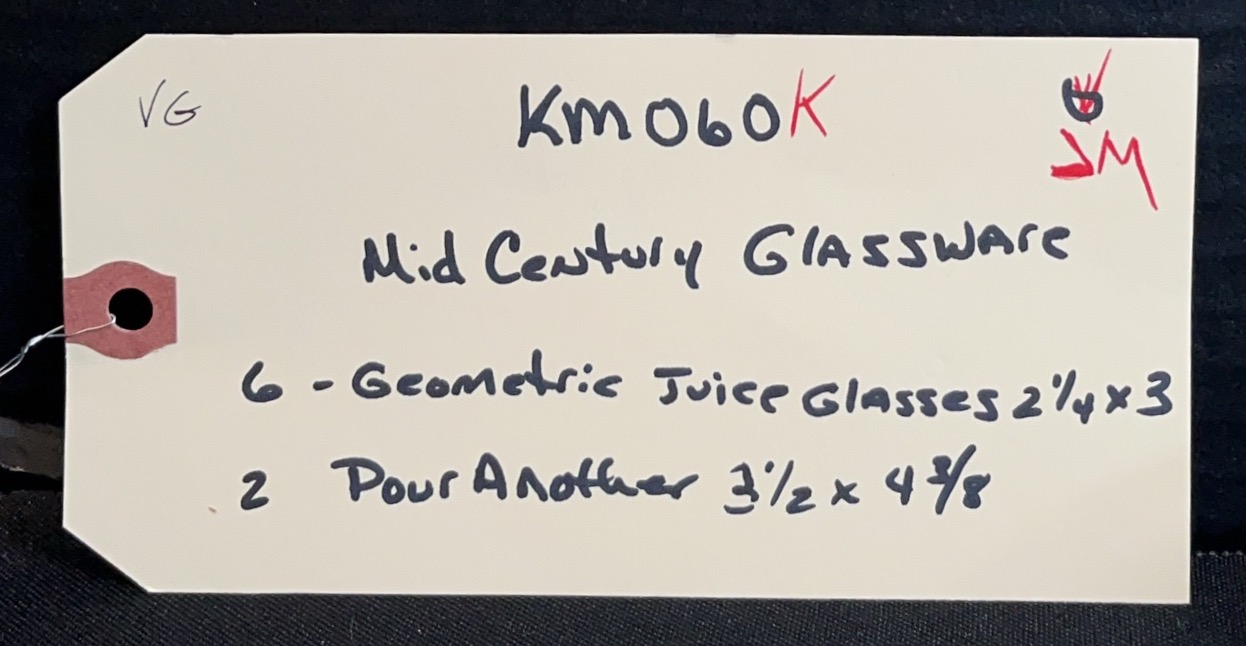 VG
KM060K
JM
Mid Century Glassware
6 - Geometric Juice Glasses 2 1/4 x 3
2 Pour Another 3 1/2 x 4 3/8